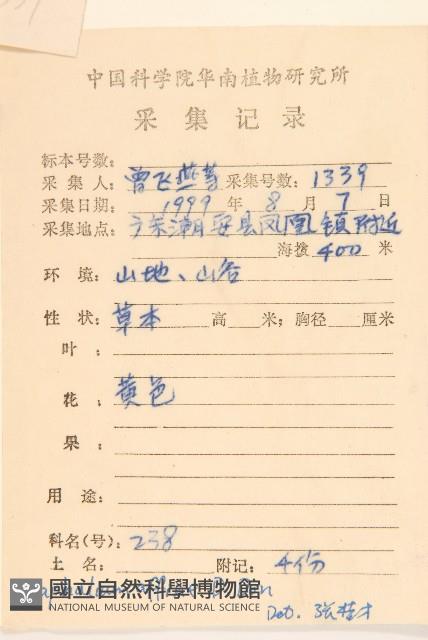 中国科学院华南植物研究所
采集记录
标本号数：
采集人：曾飞燕等 采集号数：1339
采集日期：1999 年 8 月 7 日
采集地点：广东潮安县凤凰镇附近
海拨 400 米
环境：山地、山谷
性状：草本 高 米；胸径 厘米
叶：
花：黄色
果：
用途：
科名(号)：238
土名： 附记：4份
國立自然科學博物館
NATIONAL MUSEUM OF NATURAL SCIENCE
Det.